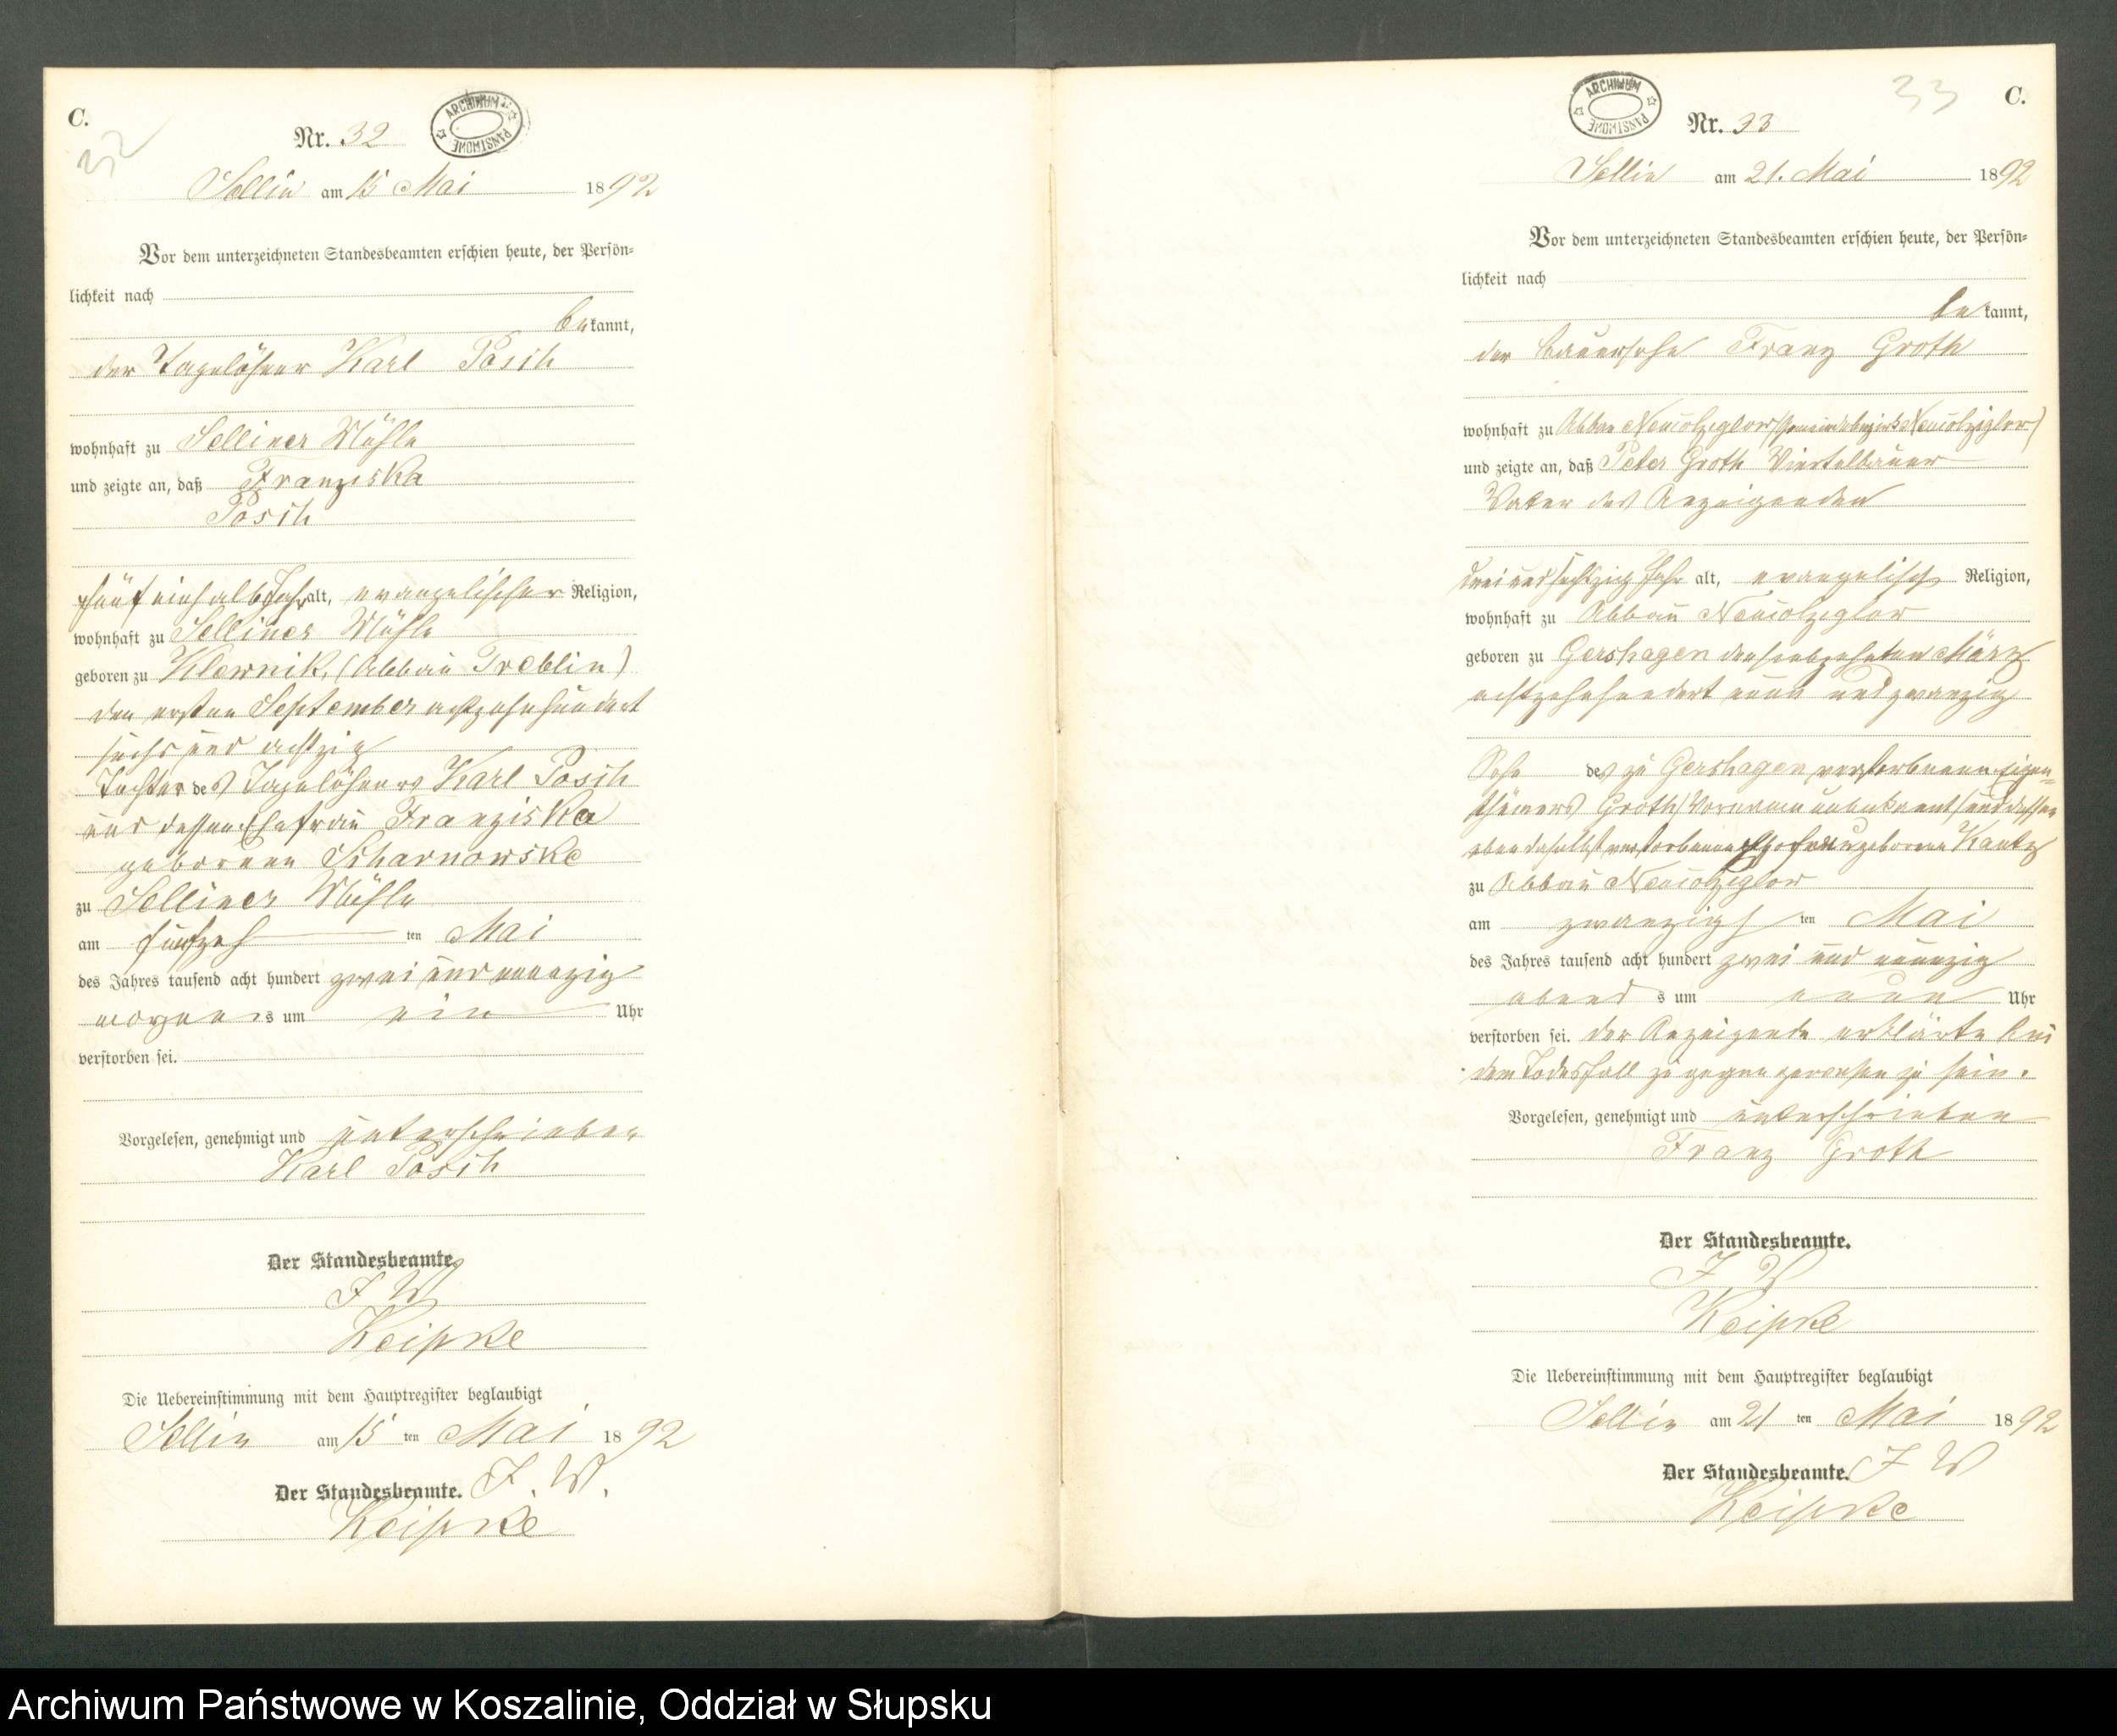 C.
32
Nr. 32
ARCHIWUM PAŃSTWOWE
Sellin am 15 Mai 1892
Vor dem unterzeichneten Standesbeamten erschien heute, der Persön-
lichkeit nach
bekannt,
der Tagelöhner Karl Posih
wohnhaft zu Selliner Mühle
und zeigte an, daß Franziska
Posih
fünf einhalb Jahr alt, evangelischer Religion,
wohnhaft zu Selliner Mühle
geboren zu (Abbau Treblin)
den ersten September achtzehnhundert
sechs und achtzig
Tochter des Tagelöhners Karl Posih
und dessen Ehefrau Franziska
geborenen Scharnowske
zu Selliner Mühle
am fünfzehnten Mai
des Jahres tausend acht hundert zwei und neunzig
morgens um ein Uhr
verstorben sei.
Vorgelesen, genehmigt und unterschrieben
Karl Posih
Der Standesbeamte.
J W
Keipke
Die Uebereinstimmung mit dem Hauptregister beglaubigt
Sellin am 15 ten Mai 1892
Der Standesbeamte. J. W.
Keipke
33
C.
ARCHIWUM PAŃSTWOWE
Nr. 33
Sellin am 21. Mai 1892
Vor dem unterzeichneten Standesbeamten erschien heute, der Persön-
lichkeit nach
bekannt,
der Bauersohn Franz Groth
wohnhaft zu Abbau Neukolziglow (Gemeindebezirk Neukolziglow)
und zeigte an, daß Peter Groth Viertelbauer
Vater des Anzeigenden
drei und sechszig Jahr alt, evangelisch Religion,
wohnhaft zu Abbau Neukolziglow
geboren zu Gershagen den siebzehnten März
achtzehnhundert neun und zwanzig
Sohn des zu Gershagen verstorbenen Eigen-
thümers Groth (Vorname unbekannt) und dessen
ebendaselbst verstorbenen Ehefrau geborene
zu Abbau Neukolziglow
am zwanzigsten Mai
des Jahres tausend acht hundert zwei und neunzig
abends um neun Uhr
verstorben sei. der Anzeigende erklärte bei
dem Todesfall zugegen gewesen zu sein.
Vorgelesen, genehmigt und unterschrieben
Franz Groth
Der Standesbeamte.
J W
Keipke
Die Uebereinstimmung mit dem Hauptregister beglaubigt
Sellin am 21 ten Mai 1892
Der Standesbeamte. J W
Keipke
Archiwum Państwowe w Koszalinie, Oddział w Słupsku